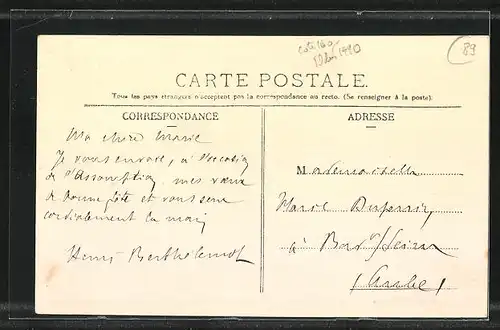 cote 160
1990
89
CARTE POSTALE.
Tous les pays étrangers n'acceptent pas la correspondance au recto. (Se renseigner à la poste).
CORRESPONDANCE
ADRESSE
Ma chère Marie
Je vous envoie, à l'occasion
de l'Assomption, mes vœux
de bonne fête et vous serre
cordialement la main
Henri Berthelemot
Mademoiselle
Marie
à Bar s/Seine
(Aube)